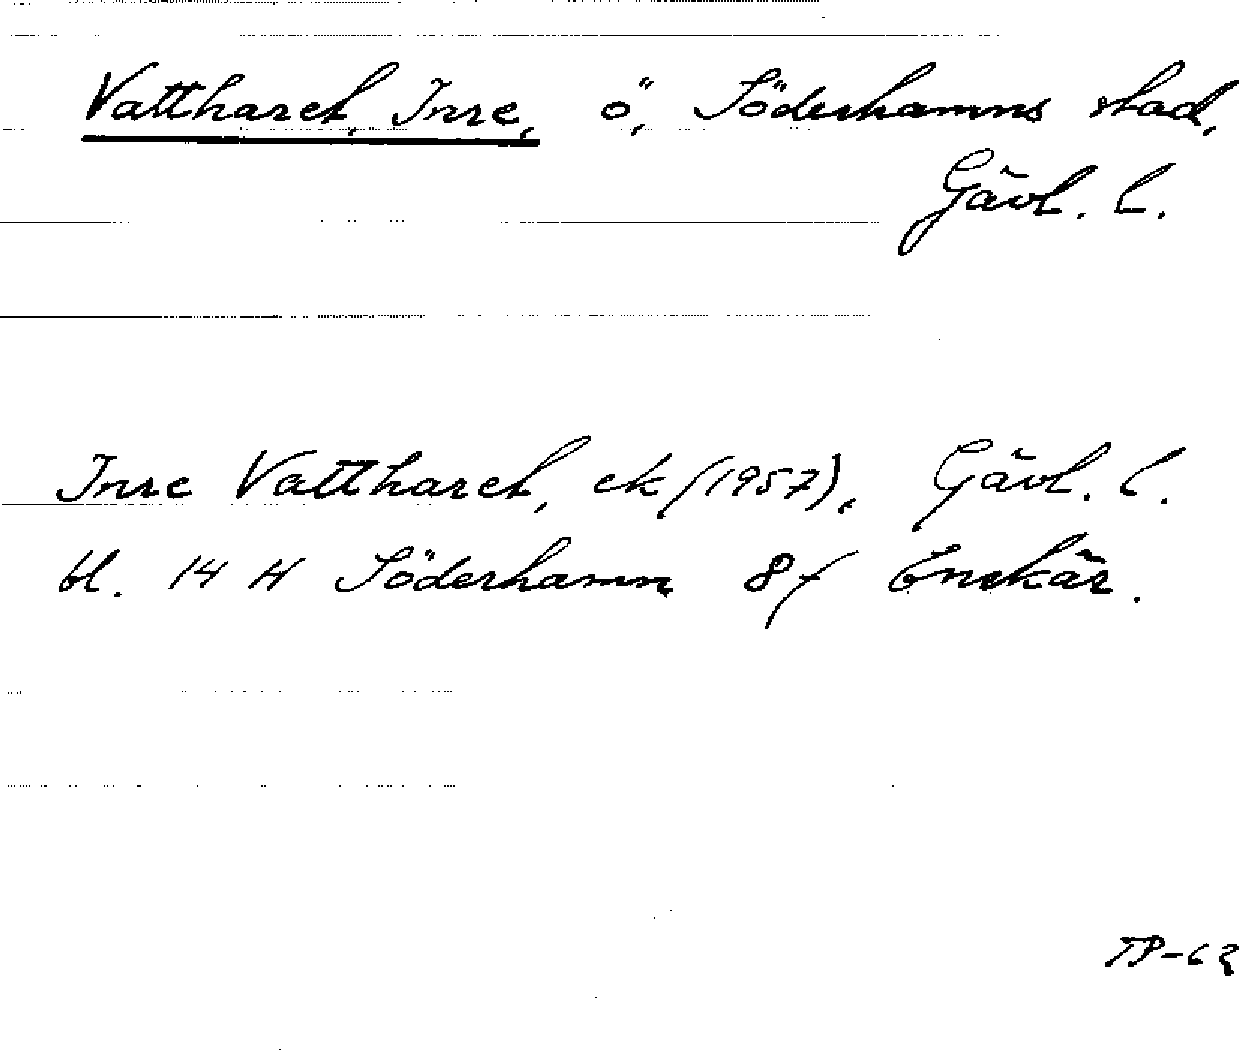 Vattharet, Inre, ö, Söderhamns stad,
Gävl. l.
Inre Vattharet, ek (1957), Gävl. l.
bl. 14 H Söderhamn 8f Enskär.
TP-62